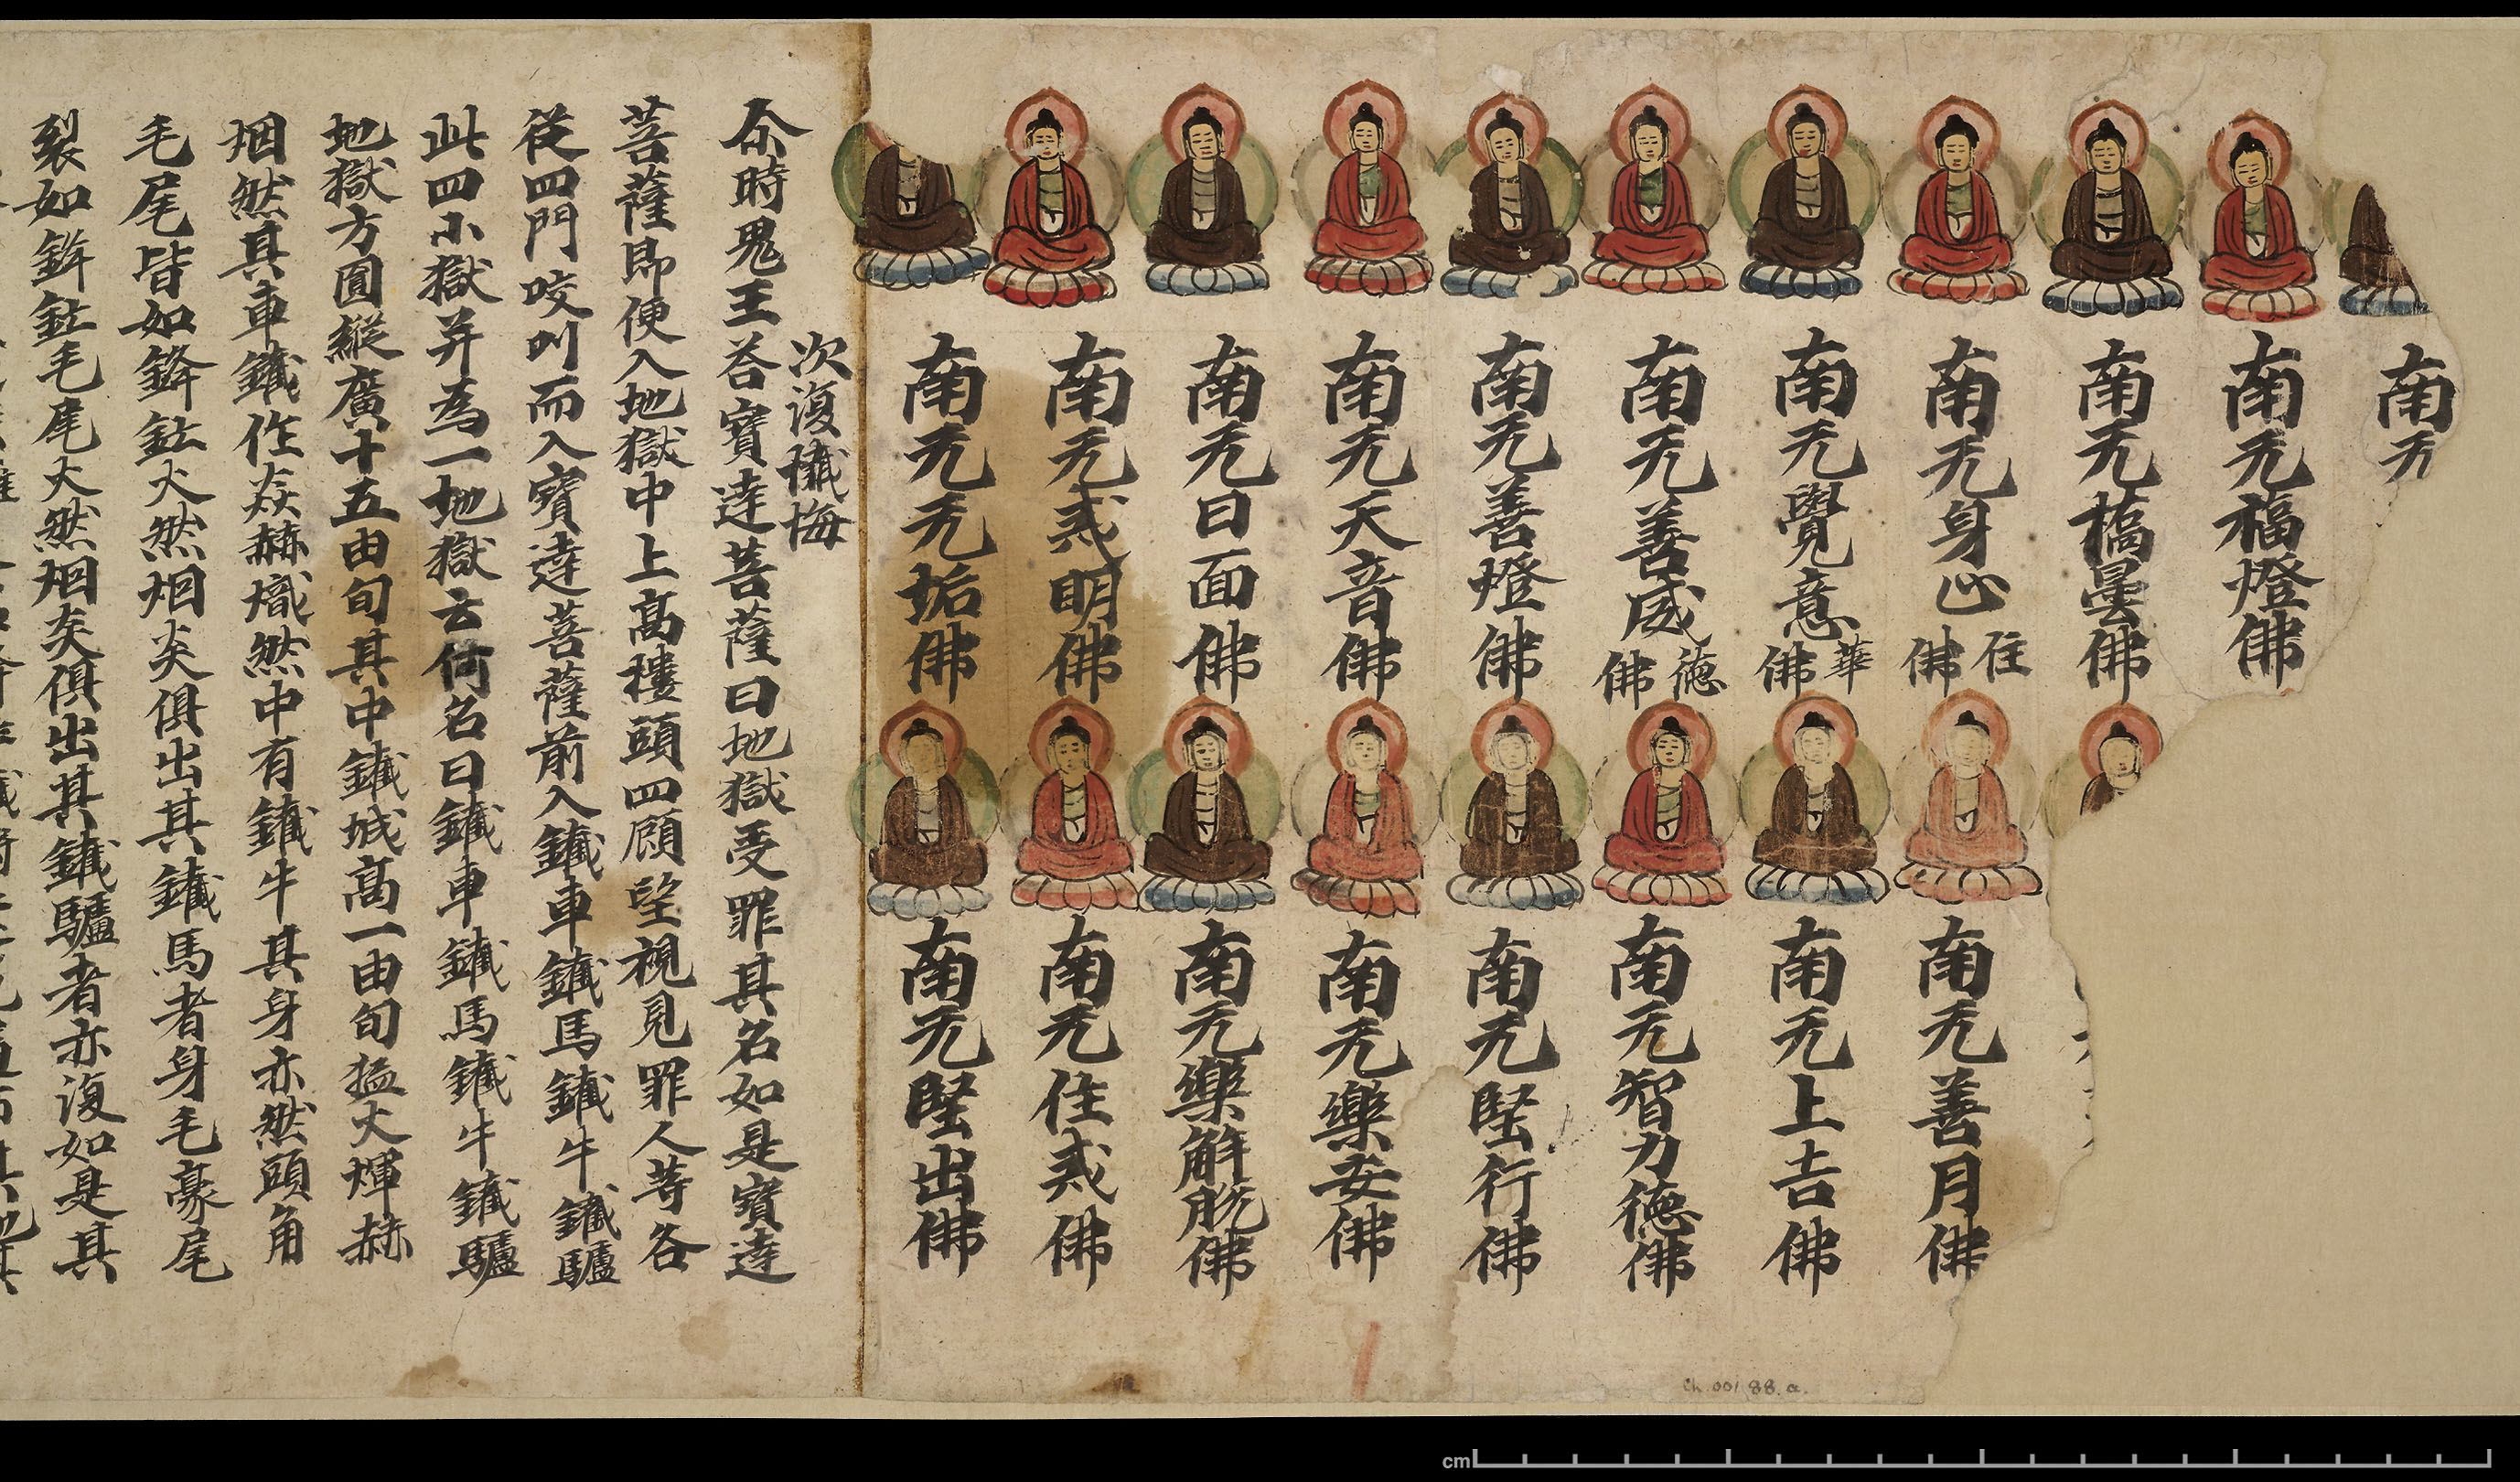 南无
南无福燈佛
南无橋曇佛
南无身心住佛
南无覺意華佛
南无善威德佛
南无善燈佛
南无天音佛
南无日面佛
南无戒明佛
南无无垢佛
南无善月佛
南无上吉佛
南无智力德佛
南无堅行佛
南无樂安佛
南无樂解脱佛
南无住戒佛
南无堅出佛
次復懺悔
尒時鬼王荅寶達菩薩曰地獄受罪其名如是寶達
菩薩即便入地獄中上高樓頭四顧望視見罪人等各
從四門咬叫而入寶達菩薩前入鐵車鐵馬鐵牛鐵驢
此四小獄并為一地獄云何名曰鐵車鐵馬鐵牛鐵驢
地獄方圓縱廣十五由旬其中鐵城高一由旬猛火煇赫
烟然其車鐵作焱赫熾然中有鐵牛其身亦然頭角
毛尾皆如鋒鈜火然烟炎俱出其鐵馬者身毛豪尾
裂如鉾鈜毛尾火然烟炎俱出其鐵驢者亦復如是其
Ch.00188.a.
cm